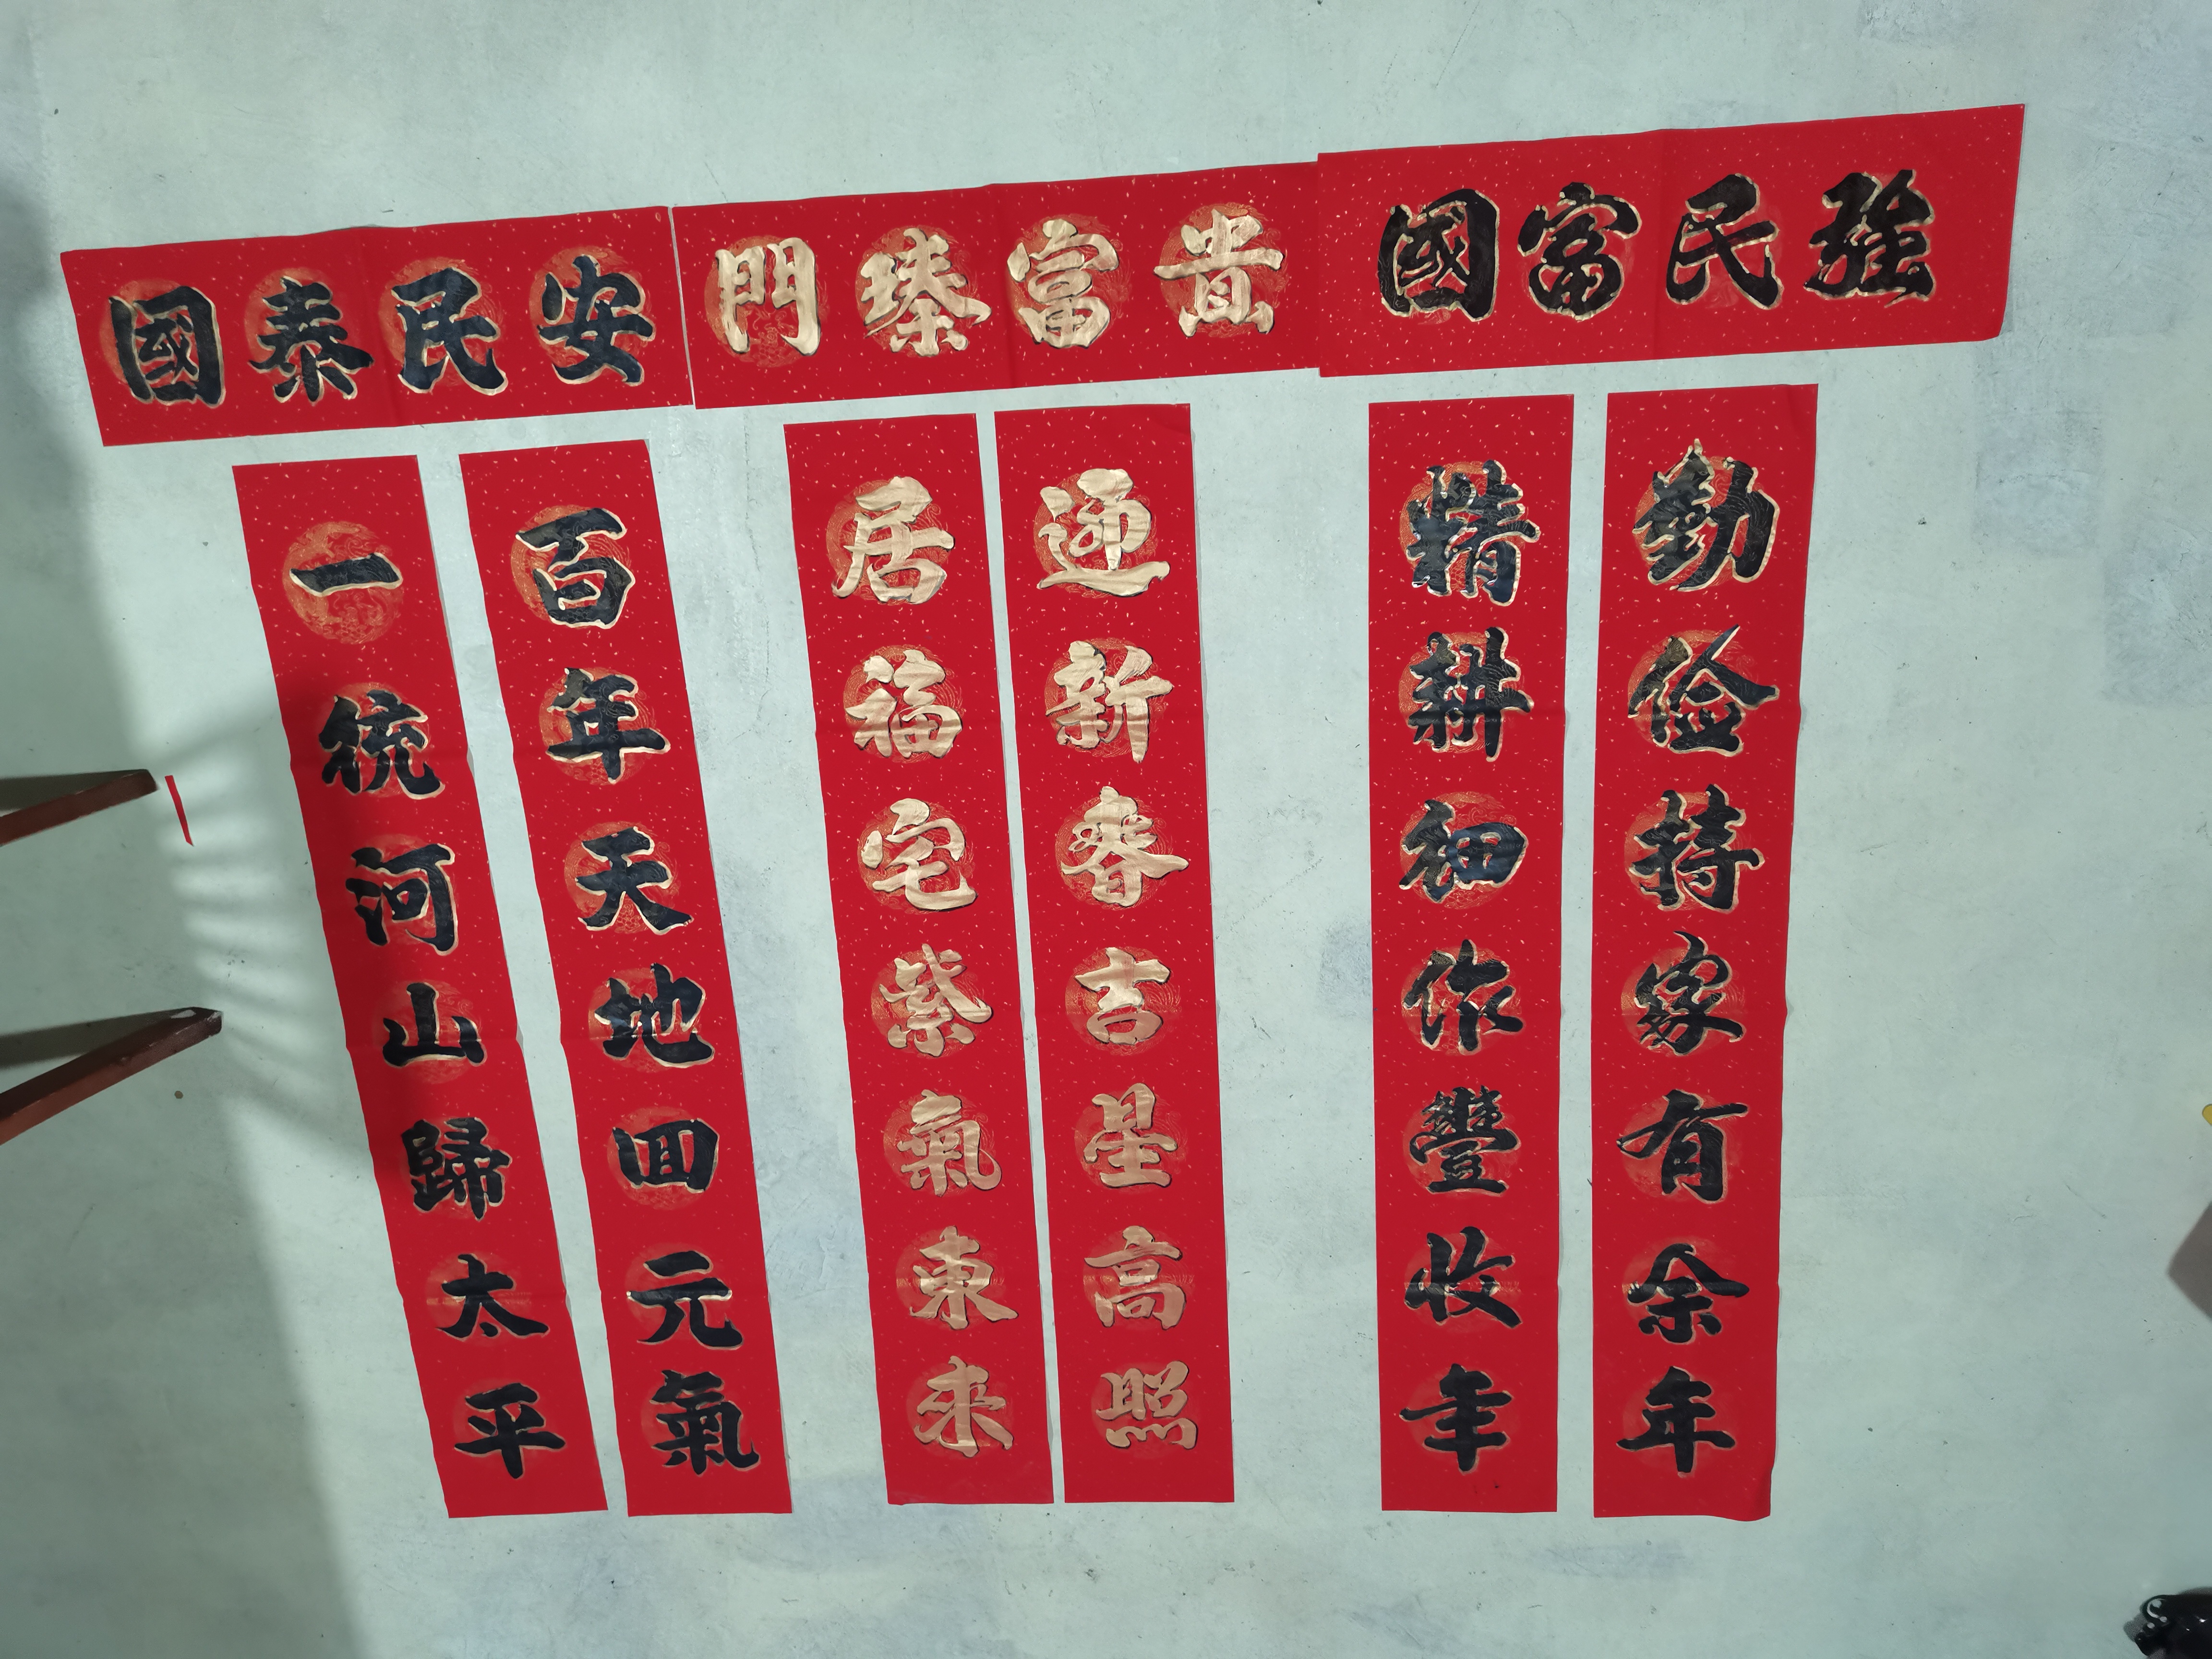 國泰民安
門臻富貴
國富民強
一統河山歸太平
百年天地回元氣
居福宅紫氣東来
迎新春吉星高照
精耕細作豐收年
勤儉持家有余年